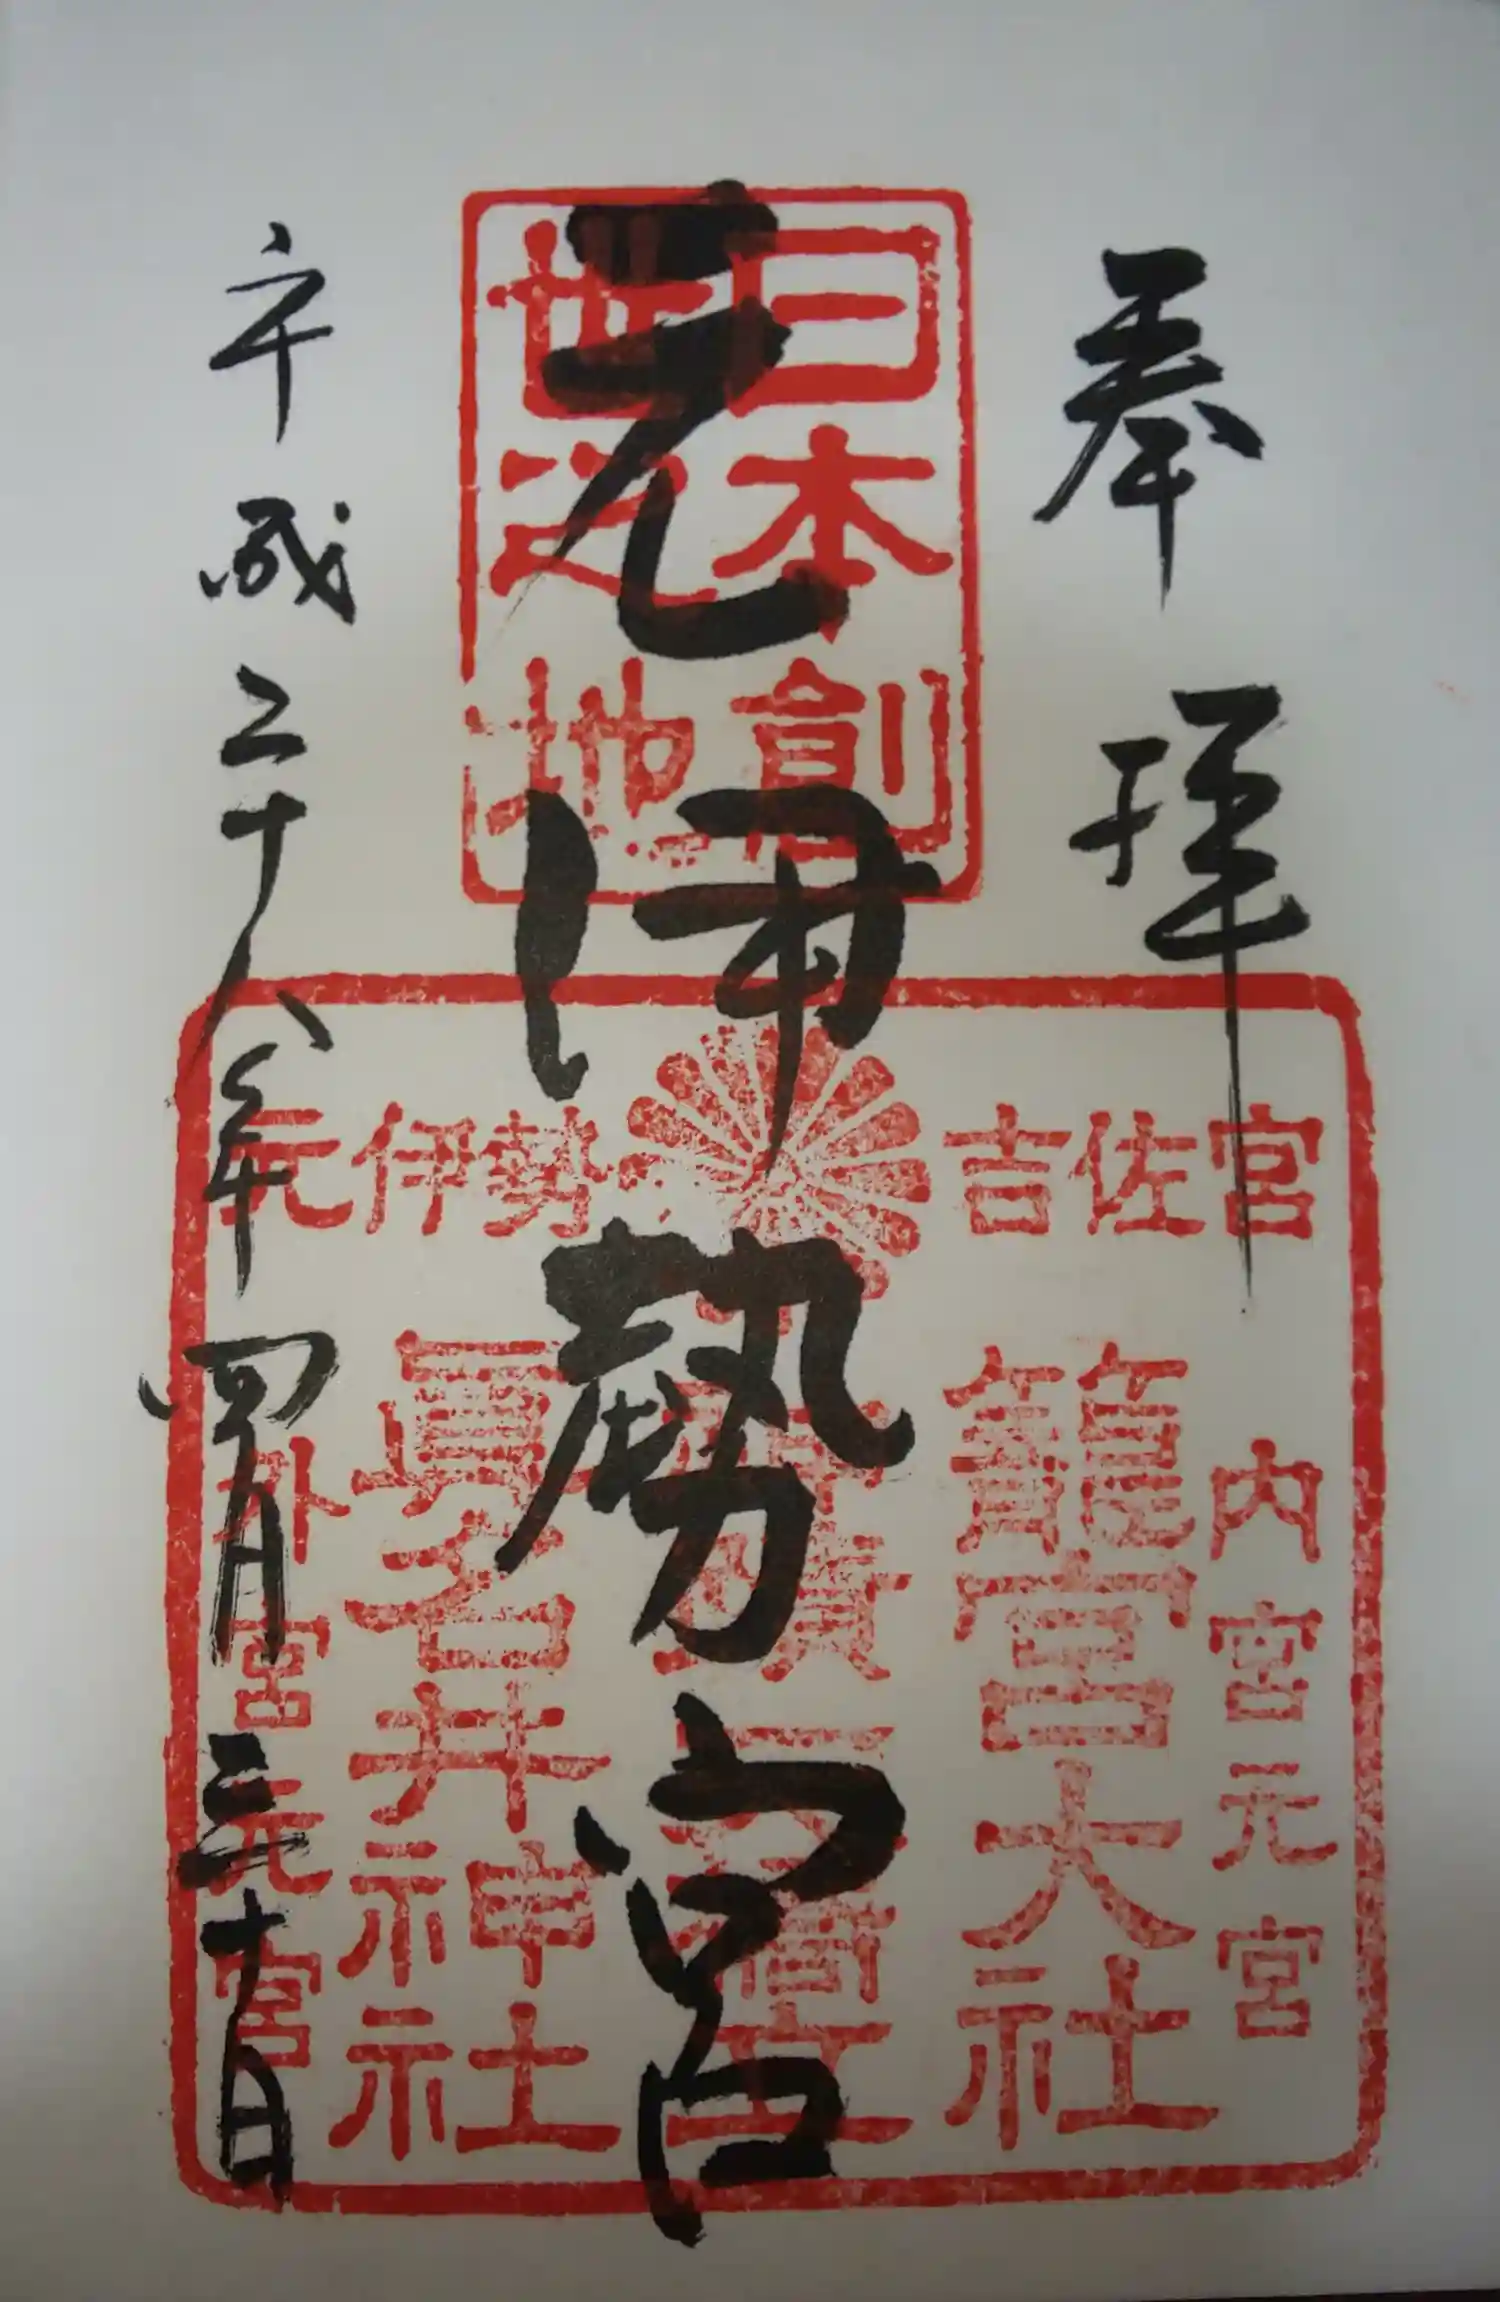 奉拝
日本創
世之地
元伊勢宮
平成二十八年四月三十日
吉佐宮
元伊勢
内宮元宮
籠宮大社
眞名井神社
外宮元宮